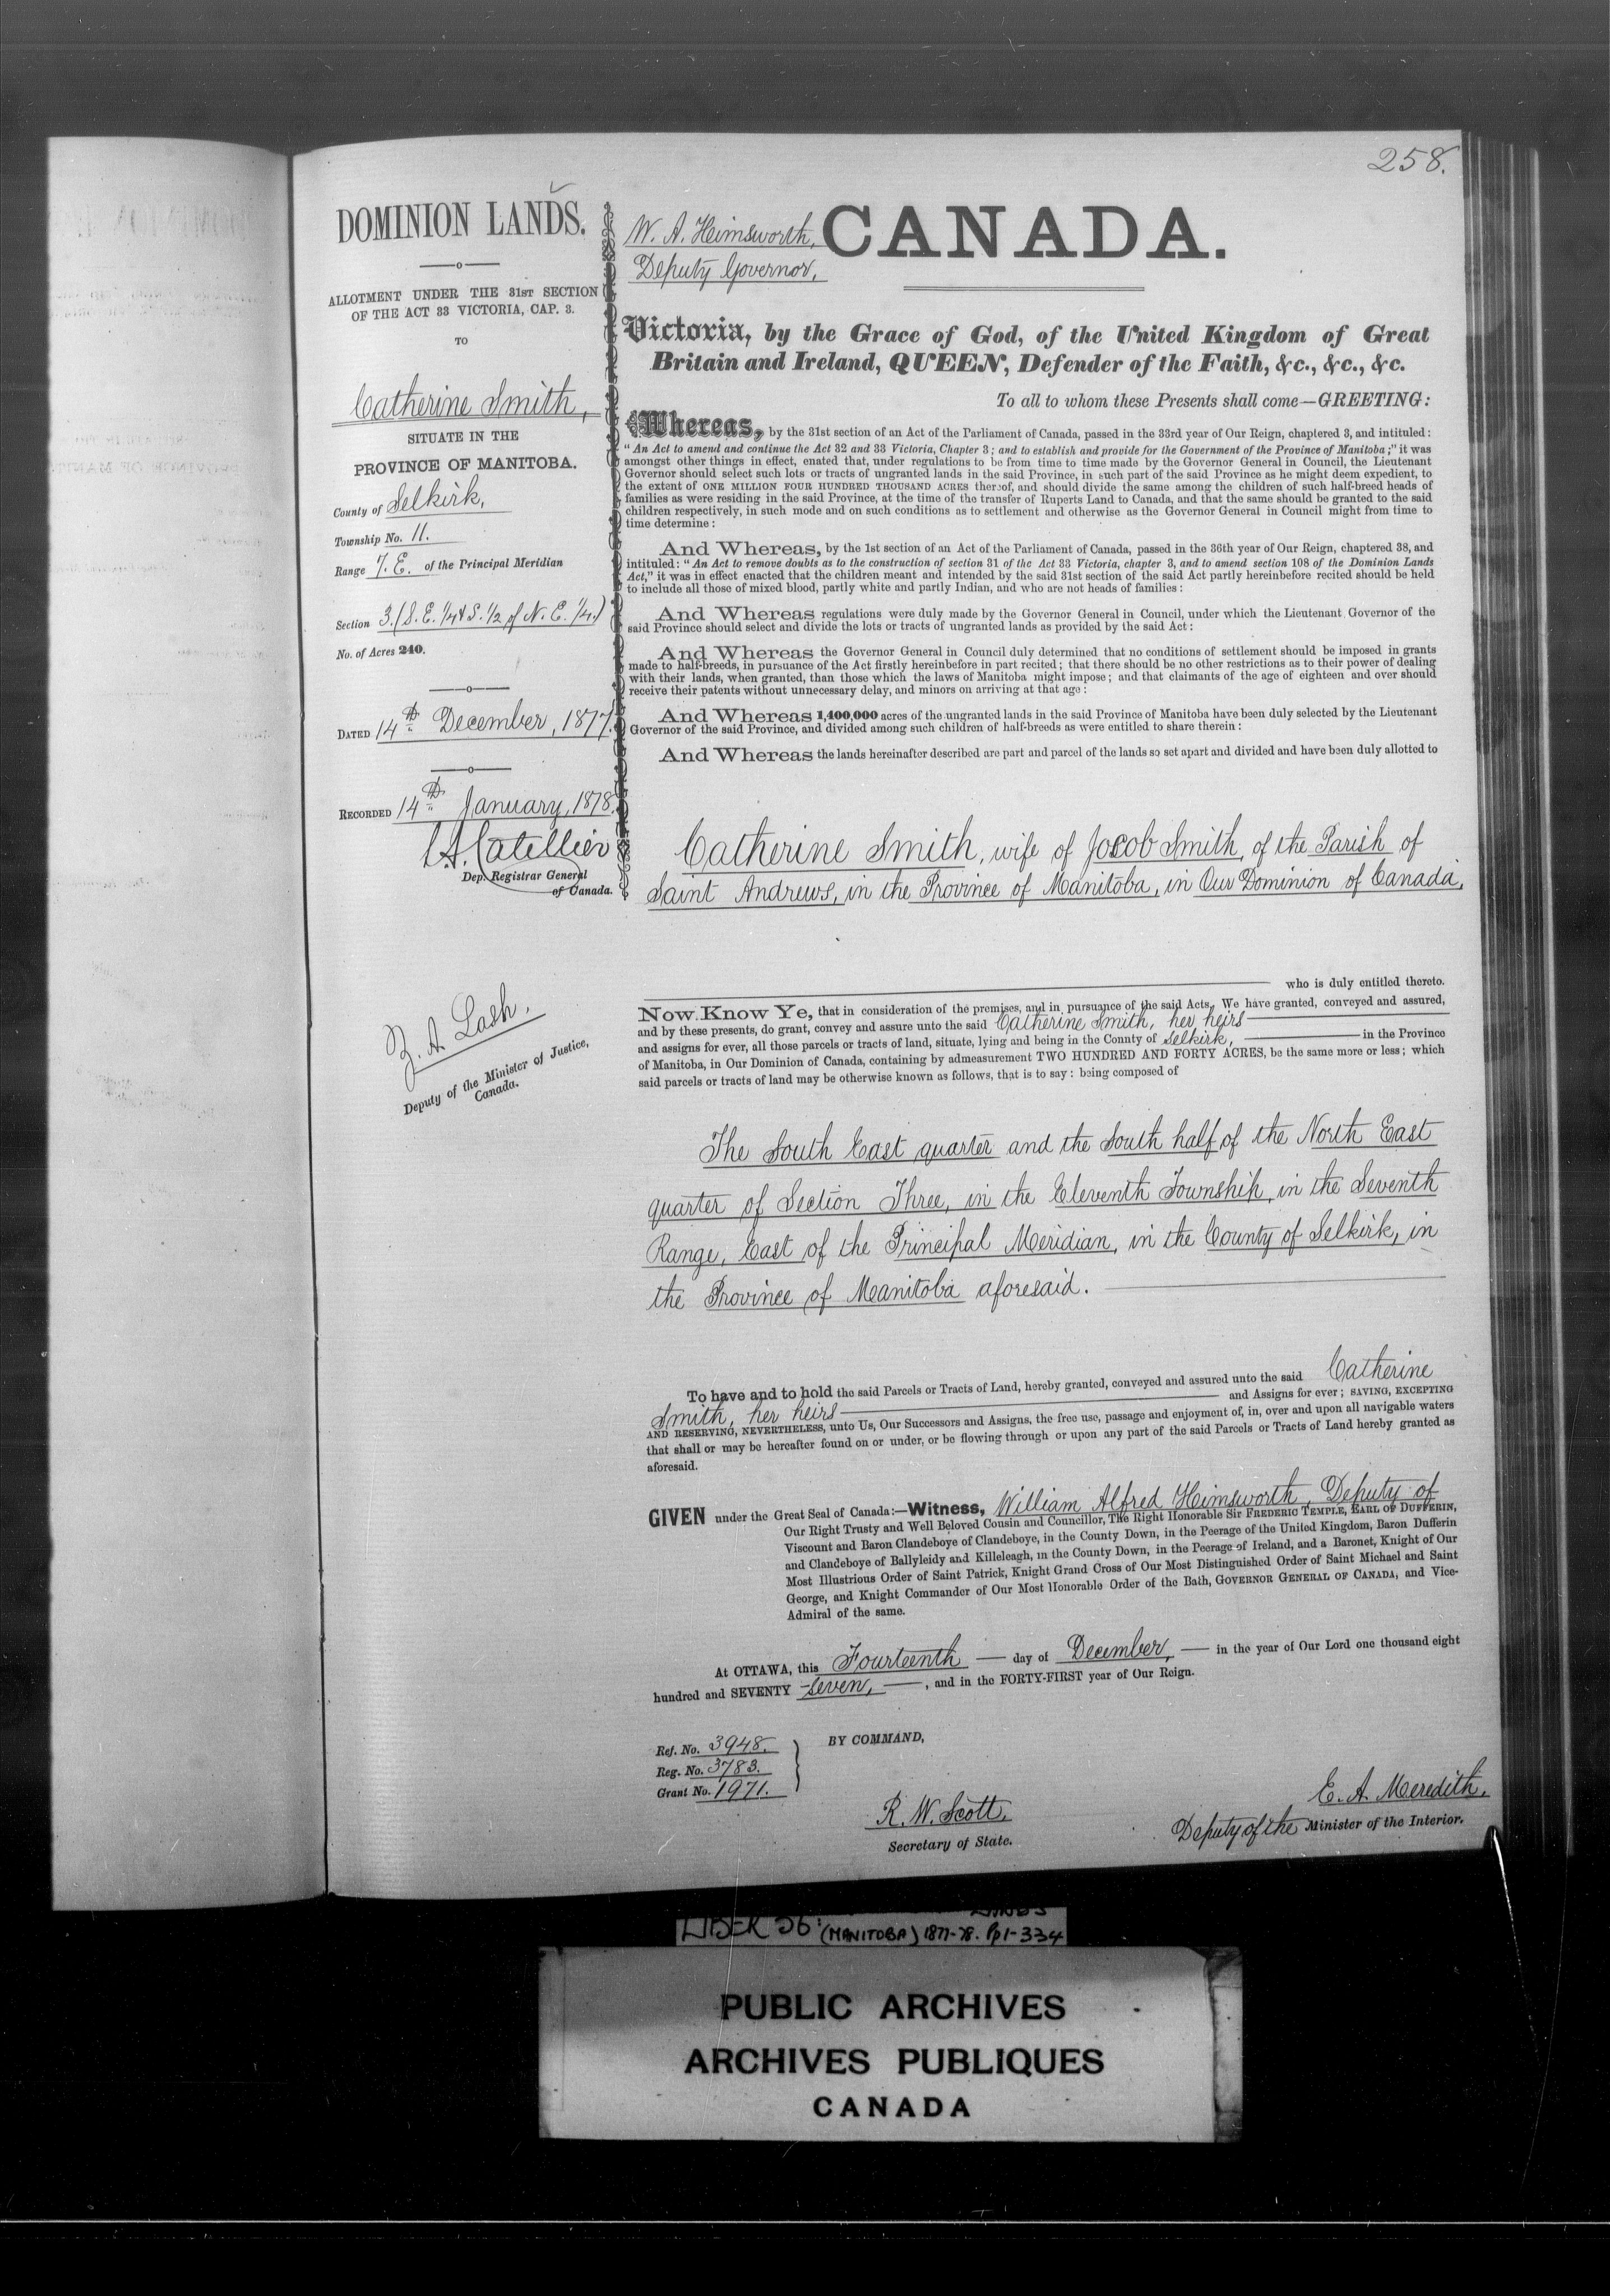 258.
DOMINION LANDS.
ALLOTMENT UNDER THE 31ST SECTION
OF THE ACT 33 VICTORIA, CAP. 3.
TO
Catherine Smith,
SITUATE IN THE
PROVINCE OF MANITOBA.
County of Selkirk,
Township No. 11.
Range 7. E. of the Principal Meridian
Section 3. (S. E. 1/4 & S. 1/2 of N. E. 1/4.)
No. of Acres 240.
DATED 14th December, 1877.
RECORDED 14th January, 1878.
L. A. Catellier
Dep. Registrar General
of Canada.
Z. A. Lash.
Deputy of the Minister of Justice,
Canada.
W. A. Himsworth,
Deputy Governor,
CANADA.
Victoria, by the Grace of God, of the United Kingdom of Great
Britain and Ireland, QUEEN, Defender of the Faith, &c., &c., &c.
To all to whom these Presents shall come—GREETING:
Whereas, by the 31st section of an Act of the Parliament of Canada, passed in the 33rd year of Our Reign, chaptered 3, and intituled:
"An Act to amend and continue the Act 32 and 33 Victoria, Chapter 3; and to establish and provide for the Government of the Province of Manitoba;" it was
amongst other things in effect, enated that, under regulations to be from time to time made by the Governor General in Council, the Lieutenant
Governor should select such lots or tracts of ungranted lands in the said Province, in such part of the said Province as he might deem expedient, to
the extent of ONE MILLION FOUR HUNDRED THOUSAND ACRES thereof, and should divide the same among the children of such half-breed heads of
families as were residing in the said Province, at the time of the transfer of Ruperts Land to Canada, and that the same should be granted to the said
children respectively, in such mode and on such conditions as to settlement and otherwise as the Governor General in Council might from time to
time determine:
And Whereas, by the 1st section of an Act of the Parliament of Canada, passed in the 36th year of Our Reign, chaptered 38, and
intituled: "An Act to remove doubts as to the construction of section 31 of the Act 33 Victoria, chapter 3, and to amend section 108 of the Dominion Lands
Act," it was in effect enacted that the children meant and intended by the said 31st section of the said Act partly hereinbefore recited should be held
to include all those of mixed blood, partly white and partly Indian, and who are not heads of families:
And Whereas regulations were duly made by the Governor General in Council, under which the Lieutenant Governor of the
said Province should select and divide the lots or tracts of ungranted lands as provided by the said Act:
And Whereas the Governor General in Council duly determined that no conditions of settlement should be imposed in grants
made to half-breeds, in pursuance of the Act firstly hereinbefore in part recited; that there should be no other restrictions as to their power of dealing
with their lands, when granted, than those which the laws of Manitoba might impose; and that claimants of the age of eighteen and over should
receive their patents without unnecessary delay, and minors on arriving at that age:
And Whereas 1,400,000 acres of the ungranted lands in the said Province of Manitoba have been duly selected by the Lieutenant
Governor of the said Province, and divided among such children of half-breeds as were entitled to share therein:
And Whereas the lands hereinafter described are part and parcel of the lands so set apart and divided and have been duly allotted to
Catherine Smith, wife of Jacob Smith, of the Parish of
Saint Andrews, in the Province of Manitoba, in Our Dominion of Canada,
who is duly entitled thereto.
Now Know Ye, that in consideration of the premises, and in pursuance of the said Acts, We have granted, conveyed and assured,
and by these presents, do grant, convey and assure unto the said Catherine Smith, her heirs
and assigns for ever, all those parcels or tracts of land, situate, lying and being in the County of Selkirk, in the Province
of Manitoba, in Our Dominion of Canada, containing by admeasurement TWO HUNDRED AND FORTY ACRES, be the same more or less; which
said parcels or tracts of land may be otherwise known as follows, that is to say: being composed of
The South East quarter and the South half of the North East
quarter of Section Three, in the Eleventh Township, in the Seventh
Range, East of the Principal Meridian, in the County of Selkirk, in
the Province of Manitoba aforesaid.
To have and to hold the said Parcels or Tracts of Land, hereby granted, conveyed and assured unto the said Catherine
Smith, her heirs and Assigns for ever; SAVING, EXCEPTING
AND RESERVING, NEVERTHELESS, unto Us, Our Successors and Assigns, the free use, passage and enjoyment of, in, over and upon all navigable waters
that shall or may be hereafter found on or under, or be flowing through or upon any part of the said Parcels or Tracts of Land hereby granted as
aforesaid.
GIVEN under the Great Seal of Canada:—Witness, William Alfred Himsworth, Deputy of
Our Right Trusty and Well Beloved Cousin and Councillor, The Right Honorable Sir FREDERIC TEMPLE, EARL OF DUFFERIN,
Viscount and Baron Clandeboye of Clandeboye, in the County Down, in the Peerage of the United Kingdom, Baron Dufferin
and Clandeboye of Ballyleidy and Killeleagh, in the County Down, in the Peerage of Ireland, and a Baronet, Knight of Our
Most Illustrious Order of Saint Patrick, Knight Grand Cross of Our Most Distinguished Order of Saint Michael and Saint
George, and Knight Commander of Our Most Honorable Order of the Bath, GOVERNOR GENERAL OF CANADA, and Vice-
Admiral of the same.
At OTTAWA, this Fourteenth day of December, in the year of Our Lord one thousand eight
hundred and SEVENTY-seven, , and in the FORTY-FIRST year of Our Reign.
Ref. No. 3948.
Reg. No. 3783.
Grant No. 1971.
BY COMMAND,
R. W. Scott.
Secretary of State.
E. A. Meredith,
Deputy of the Minister of the Interior.
LIBER 56: LANDS
(MANITOBA) 1877-78. Pp 1-334
PUBLIC ARCHIVES
ARCHIVES PUBLIQUES
CANADA